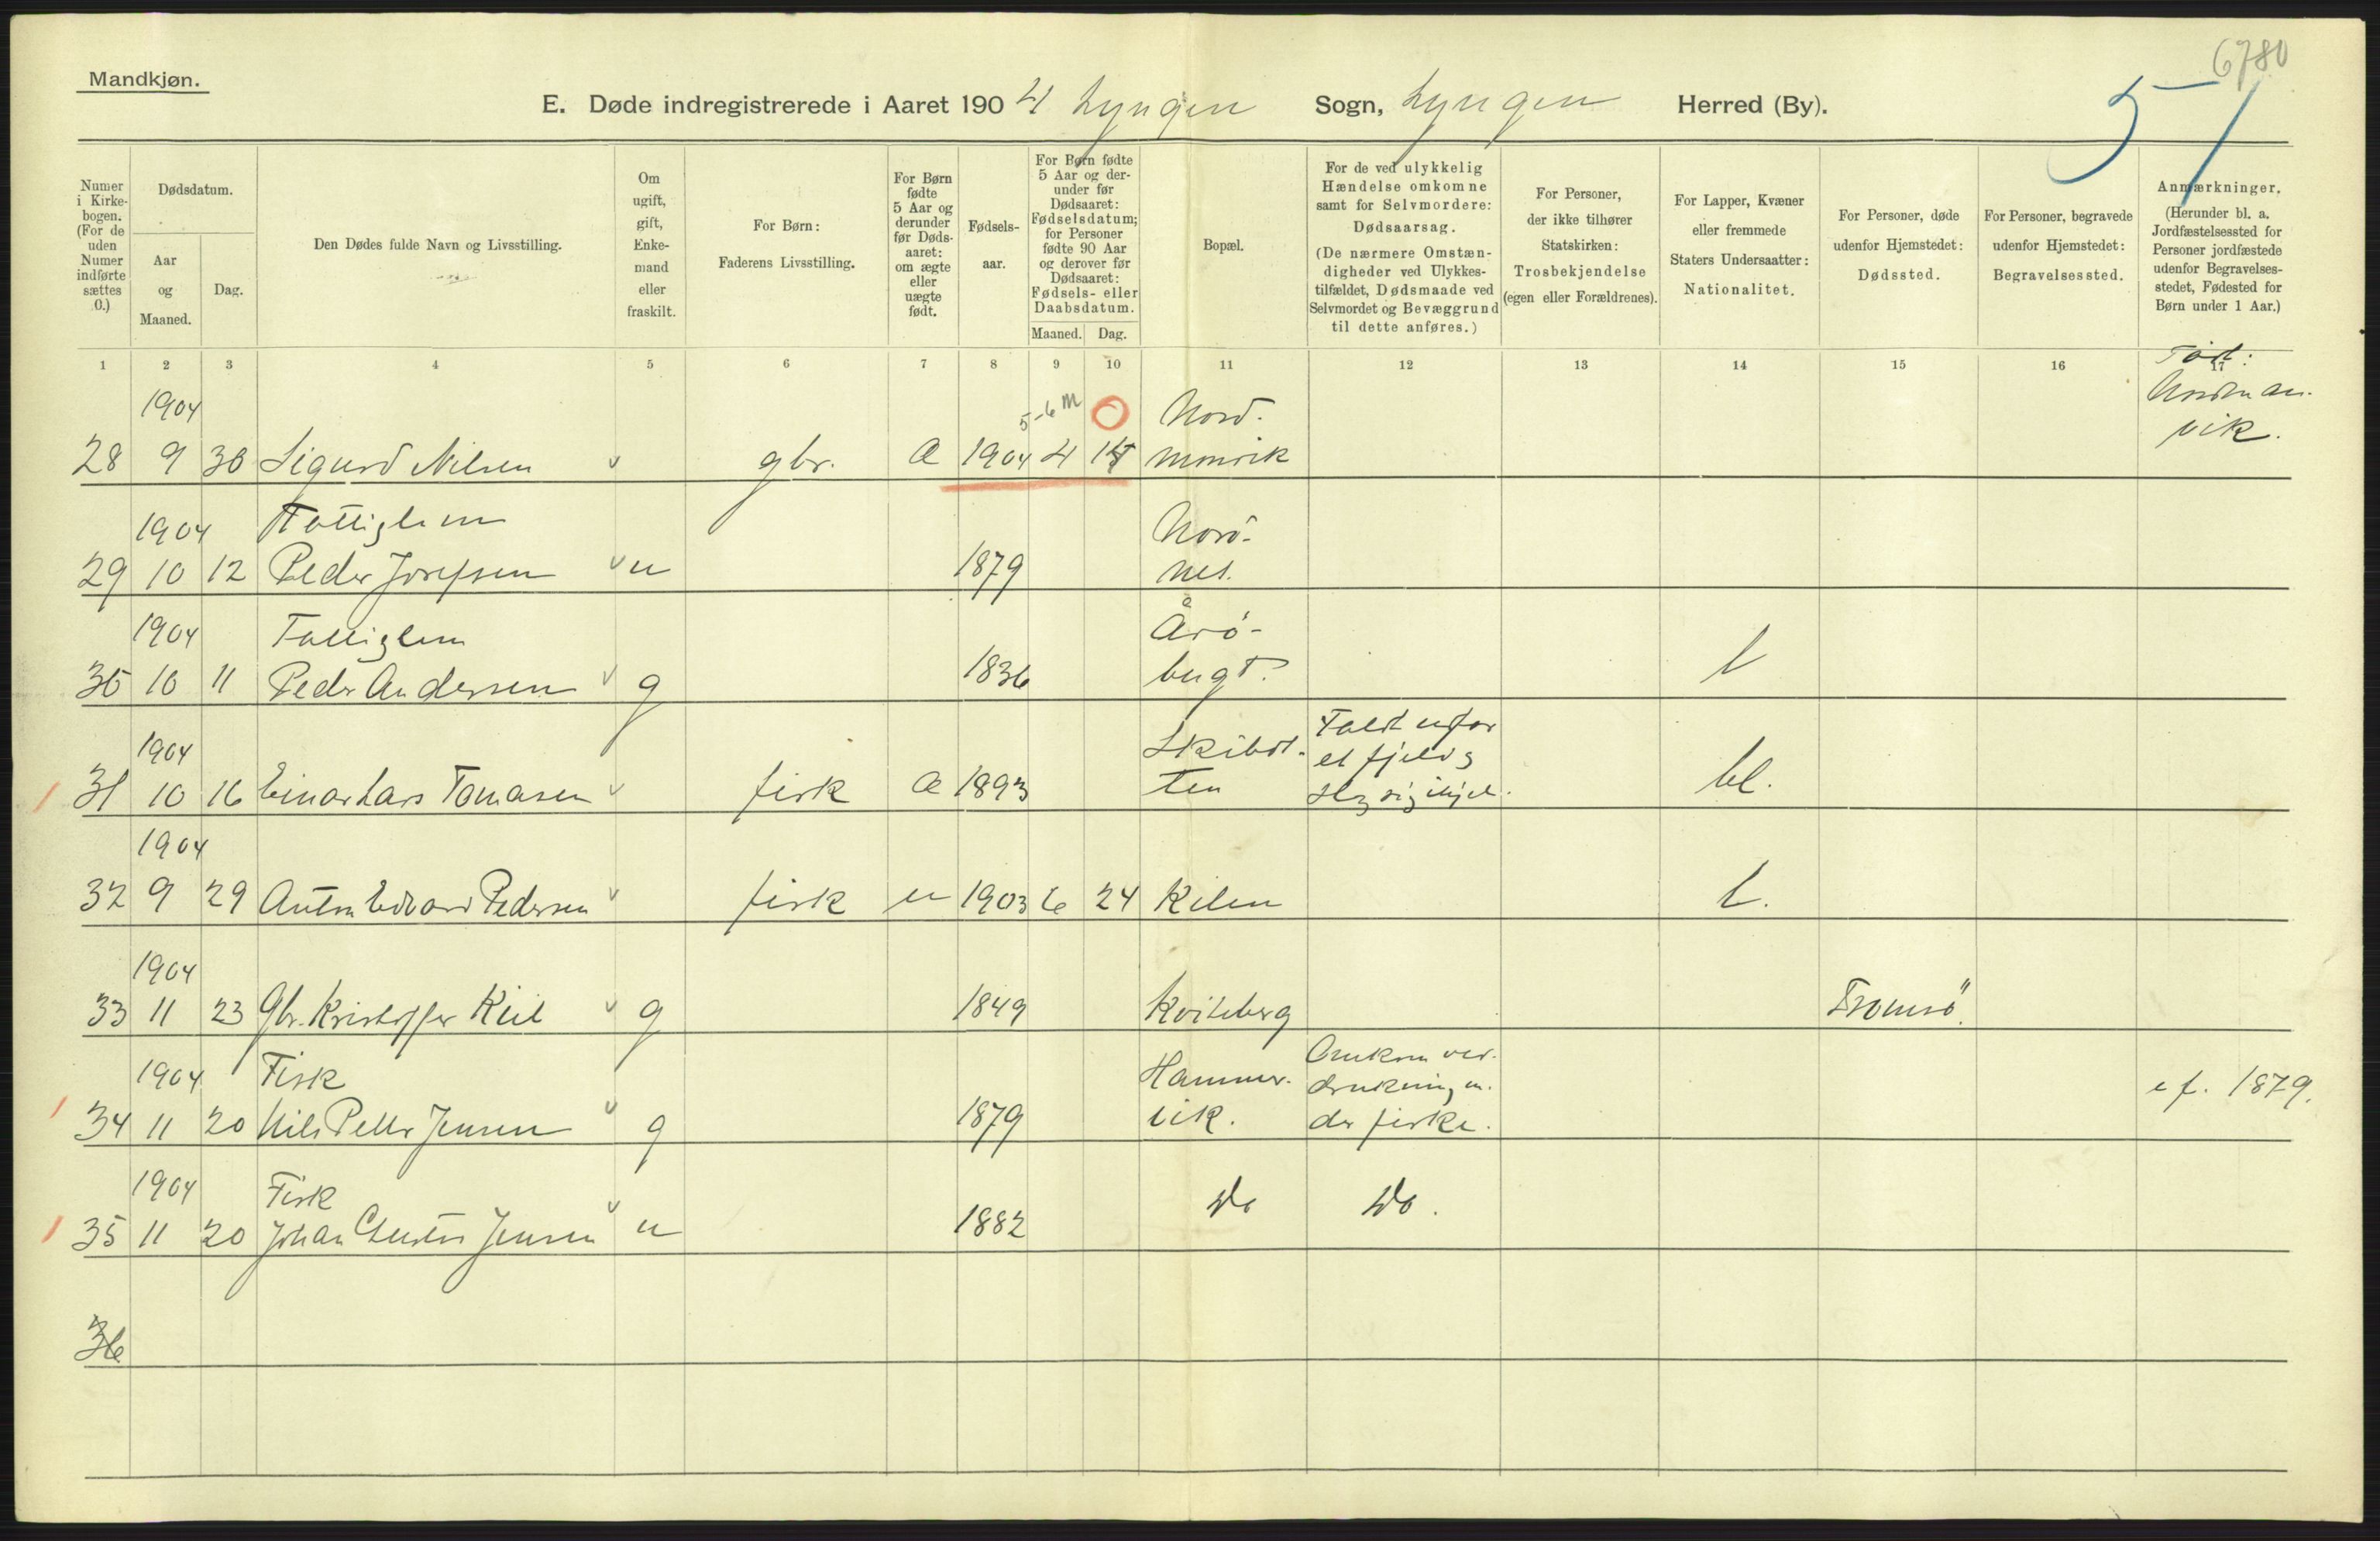 6780
Mandkjøn.
E. Døde indregistrerede i Aaret 1904 Lyngen Sogn, Lyngen Herred (By).
57
Numer i Kirkebogen. (For de uden Numer indførte sættes 0.)
Dødsdatum.
Aar og Maaned.
Dag.
Den Dødes fulde Navn og Livsstilling.
Om ugift, gift, Enkemand eller fraskilt.
For Børn: Faderens Livsstilling.
For Børn fødte 5 Aar og derunder før Dødsaaret: om ægte eller uægte født.
Fødselsaar.
For Børn fødte 5 Aar og derunder før Dødsaaret: Fødselsdatum; for Personer fødte 90 Aar og derover før Dødsaaret: Fødsels- eller Daabsdatum.
Maaned. Dag.
Bopæl.
For de ved ulykkelig Hændelse omkomne samt for Selvmordere: Dødsaarsag.
(De nærmere Omstændigheder ved Ulykkestilfældet, Dødsmaade ved Selvmordet og Bevæggrund til dette anføres.)
For Personer, der ikke tilhører Statskirken: Trosbekjendelse (egen eller Forældrenes).
For Lapper, Kvæner eller fremmede Staters Undersaatter: Nationalitet.
For Personer, døde udenfor Hjemstedet: Dødssted.
For Personer, begravede udenfor Hjemstedet: Begravelsessted.
Anmærkninger,
(Herunder bl. a. Jordfæstelsessted for Personer jordfæstede udenfor Begravelsesstedet, Fødested for Børn under 1 Aar.)
1 2 3 4 5 6 7 8 9 10 11 12 13 14 15 16 17
1904 5-6 M O Nord-
28 9 30 Sigurd Nilsen v gbr. Æ 1904 4 mmvik vik.
1904 Fattiglem Nord-
29 10 12 Peder Josefsen v u 1879 nes.
1904 Fattiglem Årø-
30 10 11 Peder Andersen v g 1836 bugt. l
1904 Skibot- Faldt udfor
et fjeld
31 10 16 Einar Lars Tomasen v fisk Æ 1893 ten slog sig ihjel. bl.
1904
32 9 29 Anton Edvard Pedersen v fisk u 1903 6 24 Kilen l.
1904
33 11 23 Gbr. Kristoffer Kiil v g 1849 Kviteberg Tromsø.
1904 Fisk Hammer- Omkom ved
drukning un-
34 11 20 Nils Peder Jensen v g 1879 vik. der fiske. ef. 1879.
1904 Fisk
35 11 20 Johan Jensen v u 1882 Do Do.
36